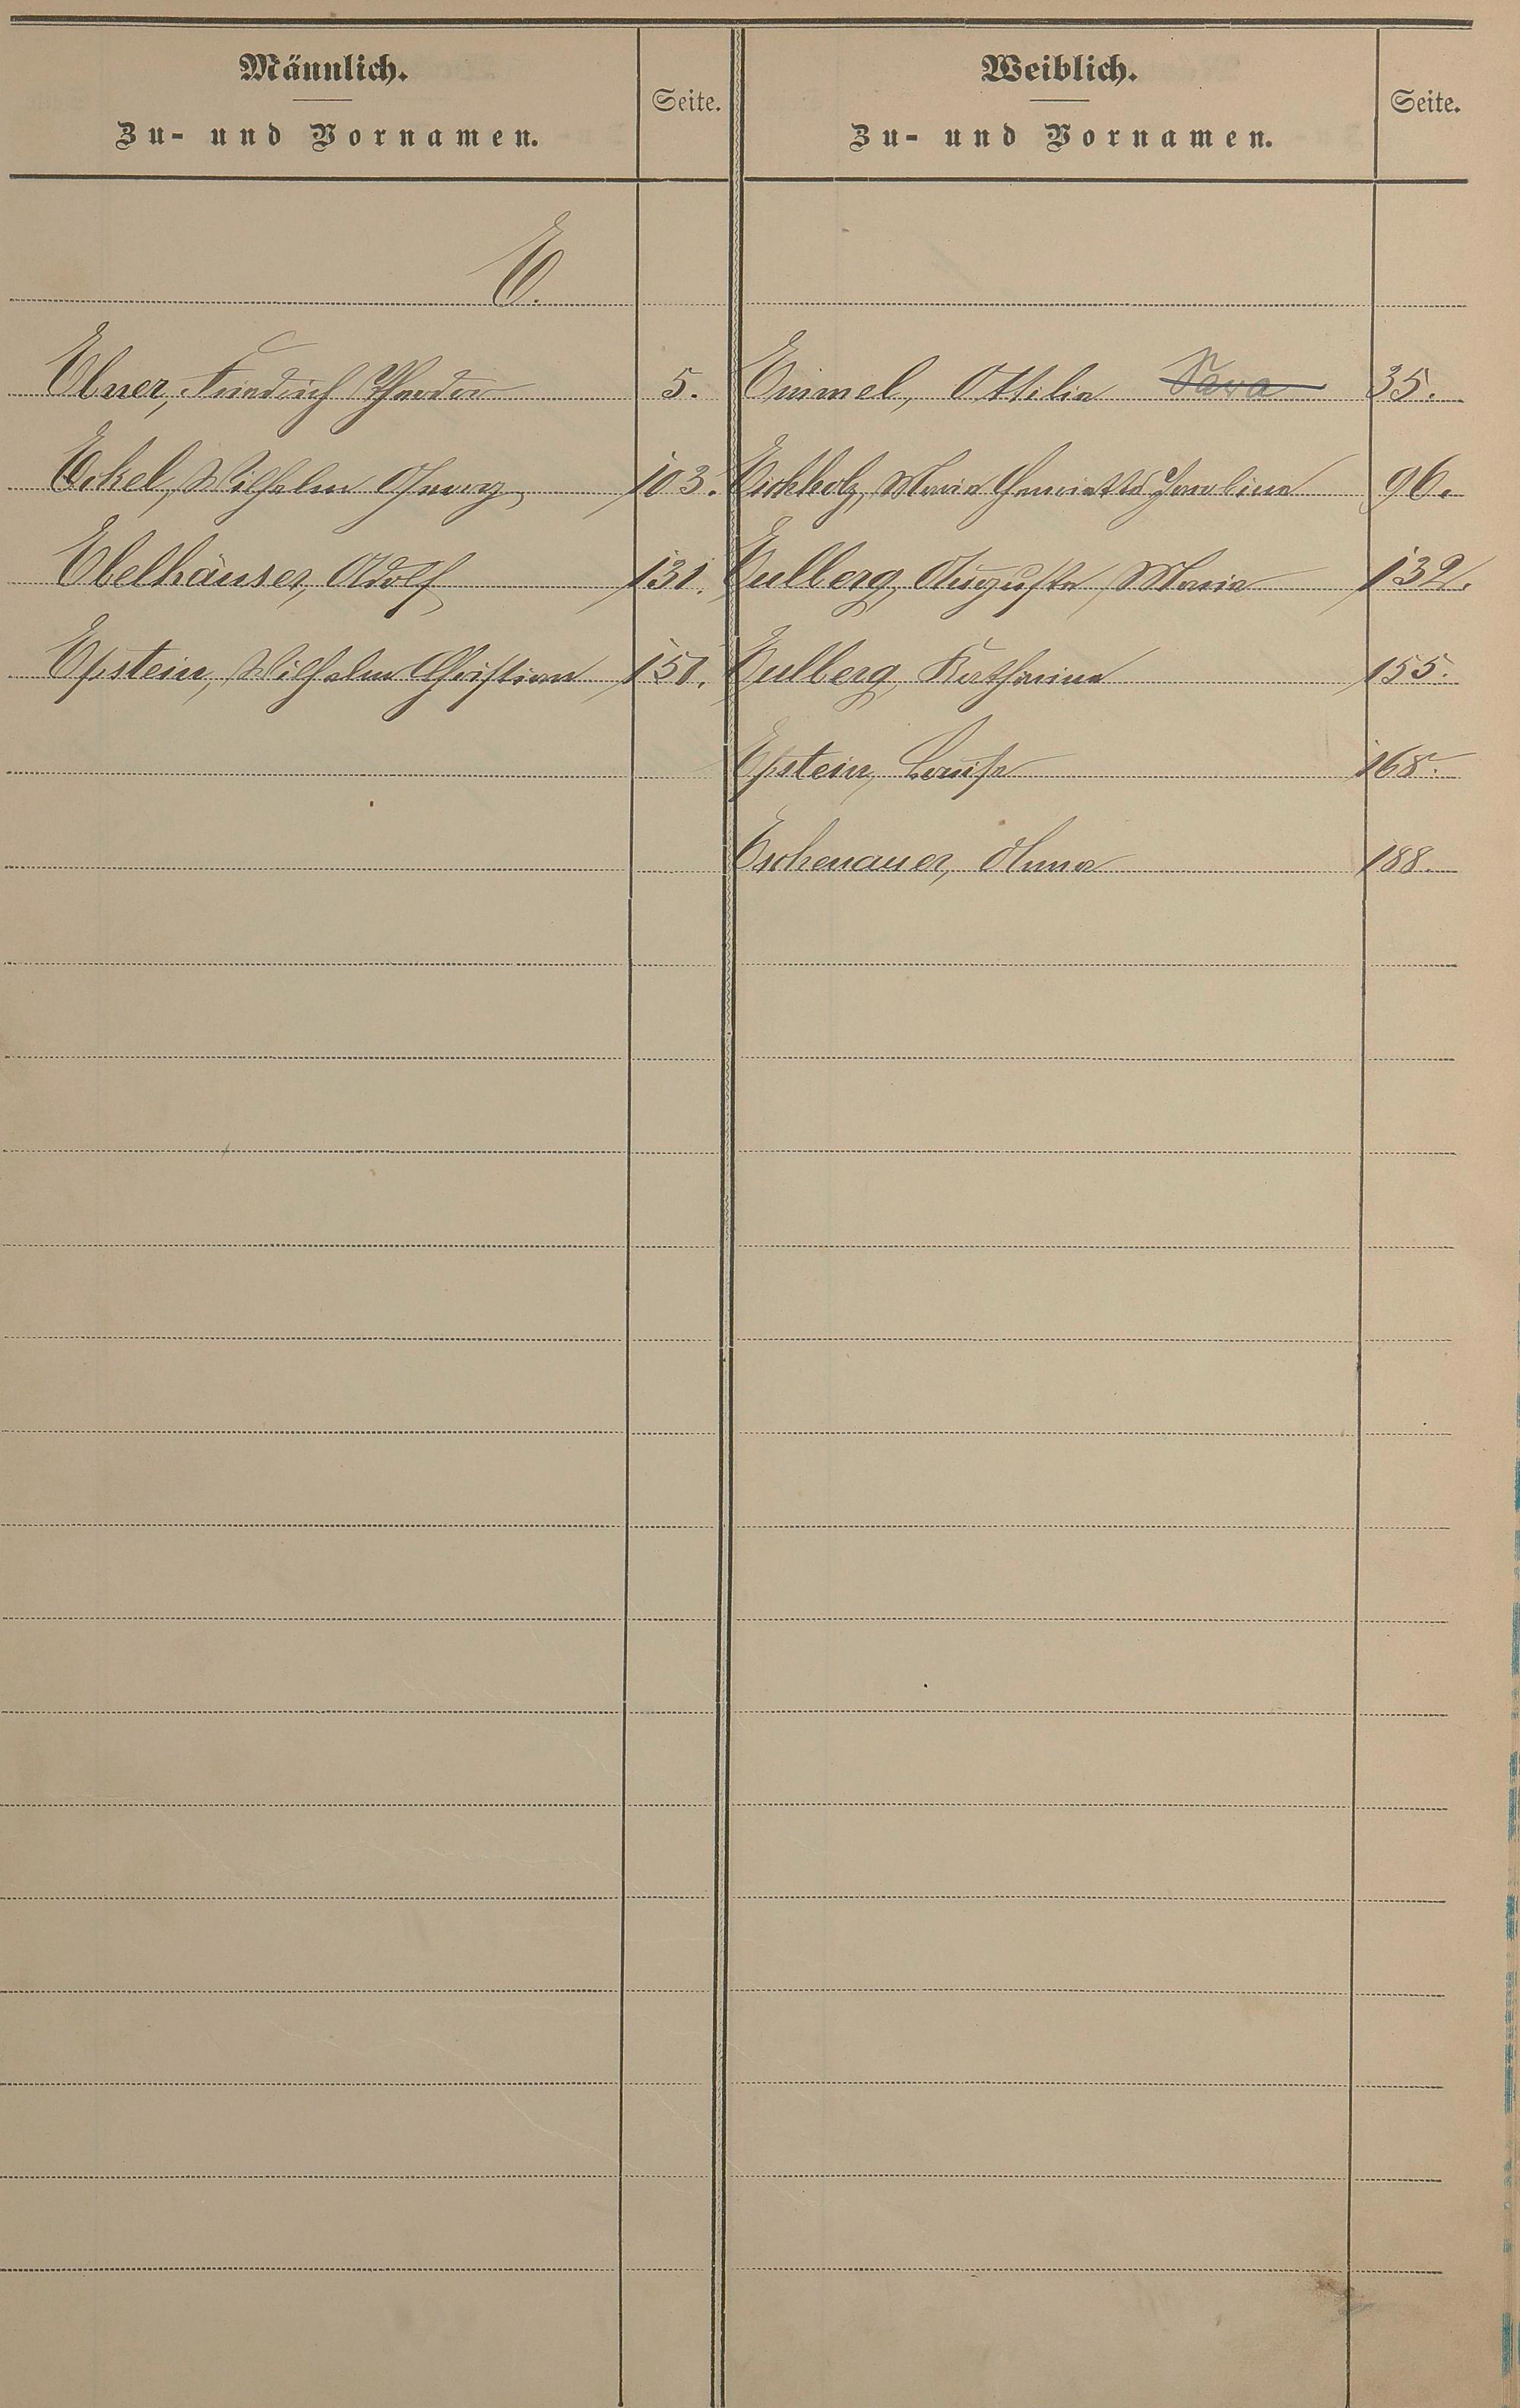 Männlich.
Zu- und Vornamen.
Seite.
Weiblich.
Zu- und Vornamen.
Seite.
E.
Ebner, Friedrich Theodor 5.
Emmel, Ottilie 35.
Eckel, Wilhelm Georg 103.
Eichholz, Marie Henriette Jacobine 96.
Ebelhäuser, Adolf 131.
Eulberg, Auguste Maria 132.
Epstein, Wilhelm Christian 151.
Eulberg, Katharina 155.
Epstein, Louise 168.
Eschenauer, Anna 188.